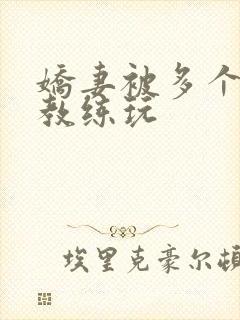 嬌妻被多个
教练玩
埃里克豪尔顿